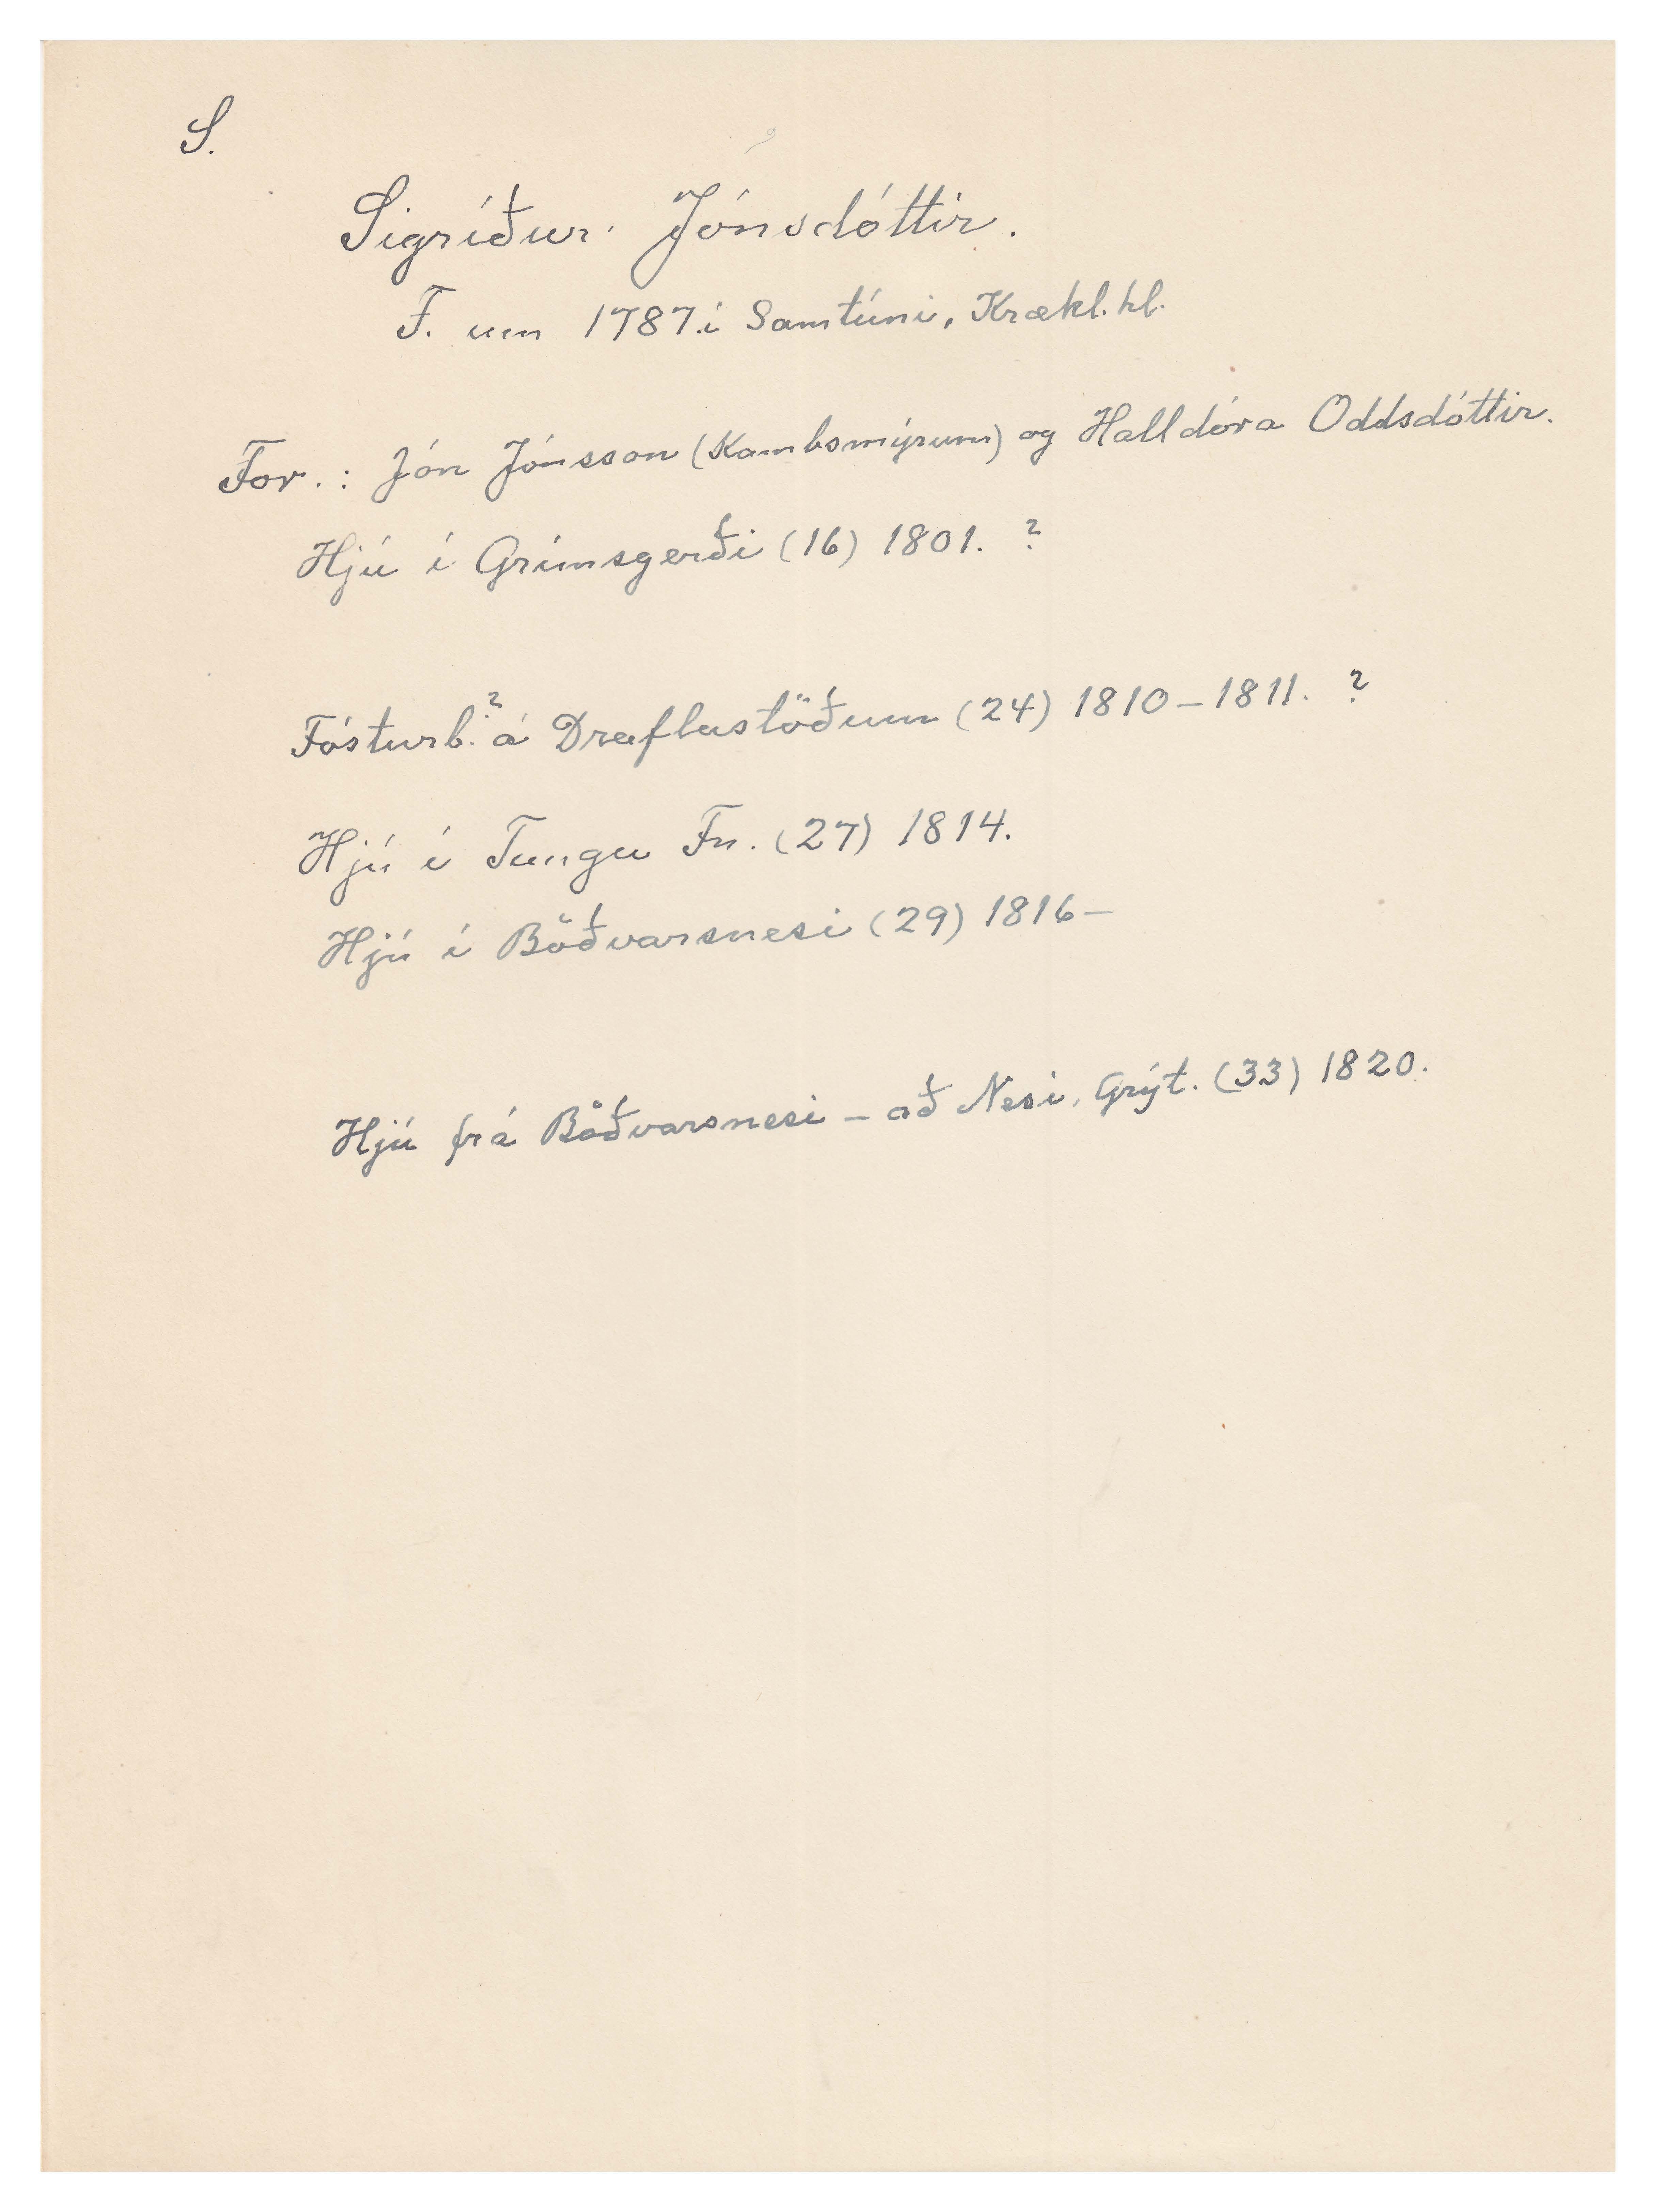 S.
Sigríður Jónsdóttir.
F. um 1787 í Samtúni, Krækl.hl.
For.: Jón Jónsson (Kambsmýrum) og Halldóra Oddsdóttir.
Hjú í Grímsgerði (16) 1801. ?
Fósturb.? á Draflastöðum (24) 1810-1811. ?
Hjú í Tungu Fn. (27) 1814.
Hjú í Böðvarsnesi (29) 1816-
Hjú frá Böðvarsnesi - að Nesi, Grýt. (33) 1820.